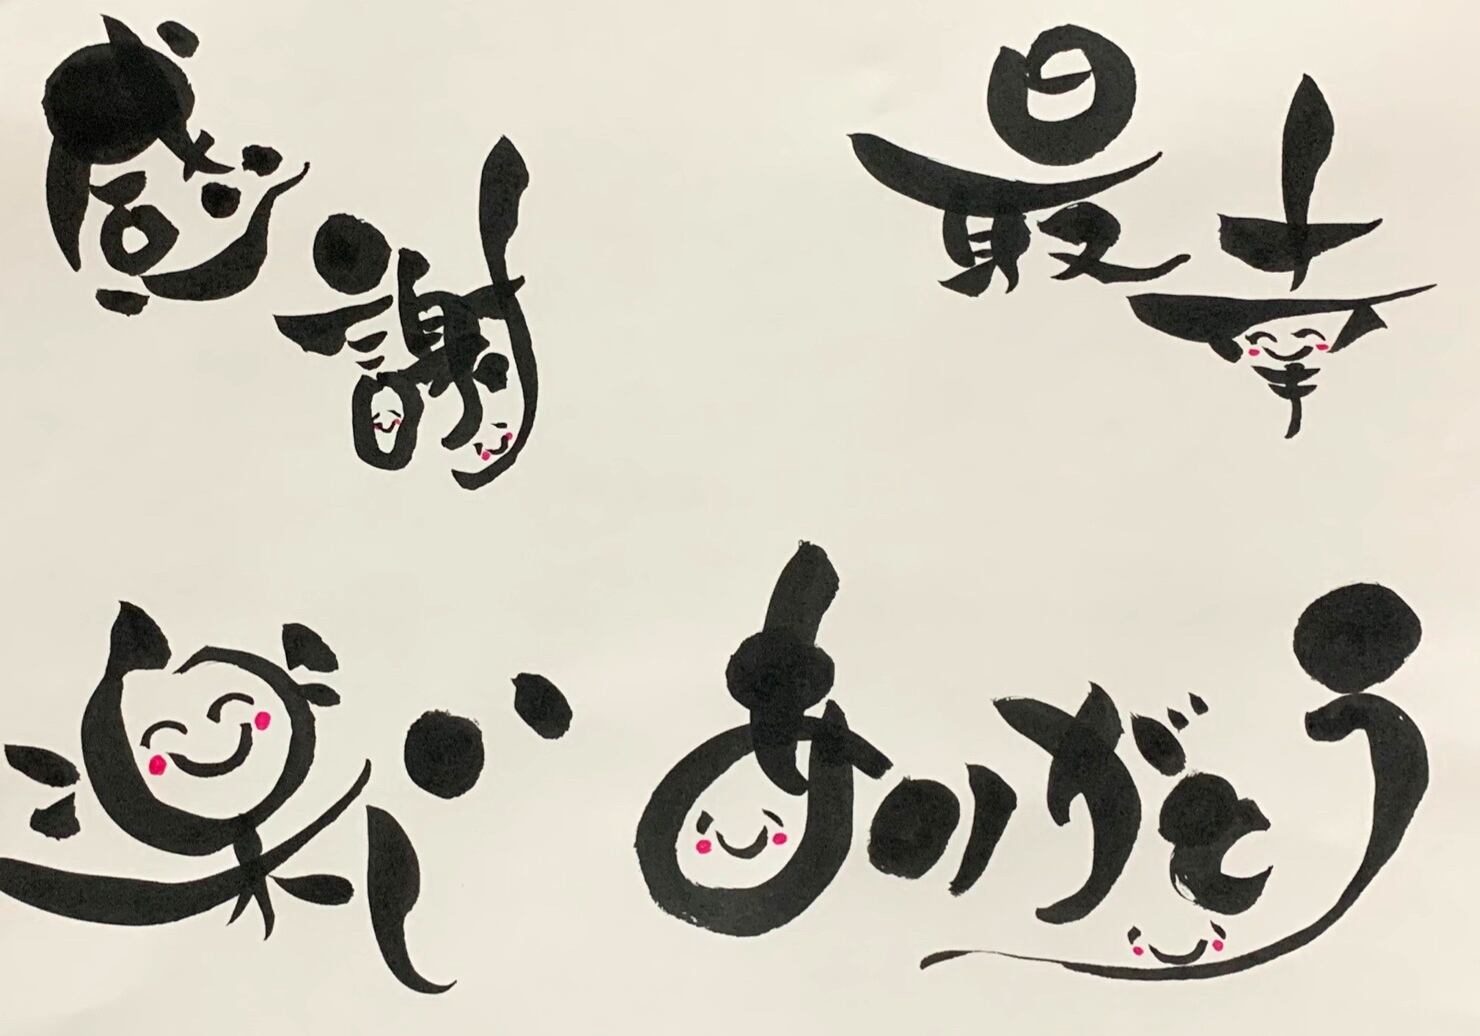 感謝
最幸
楽しい
ありがとう